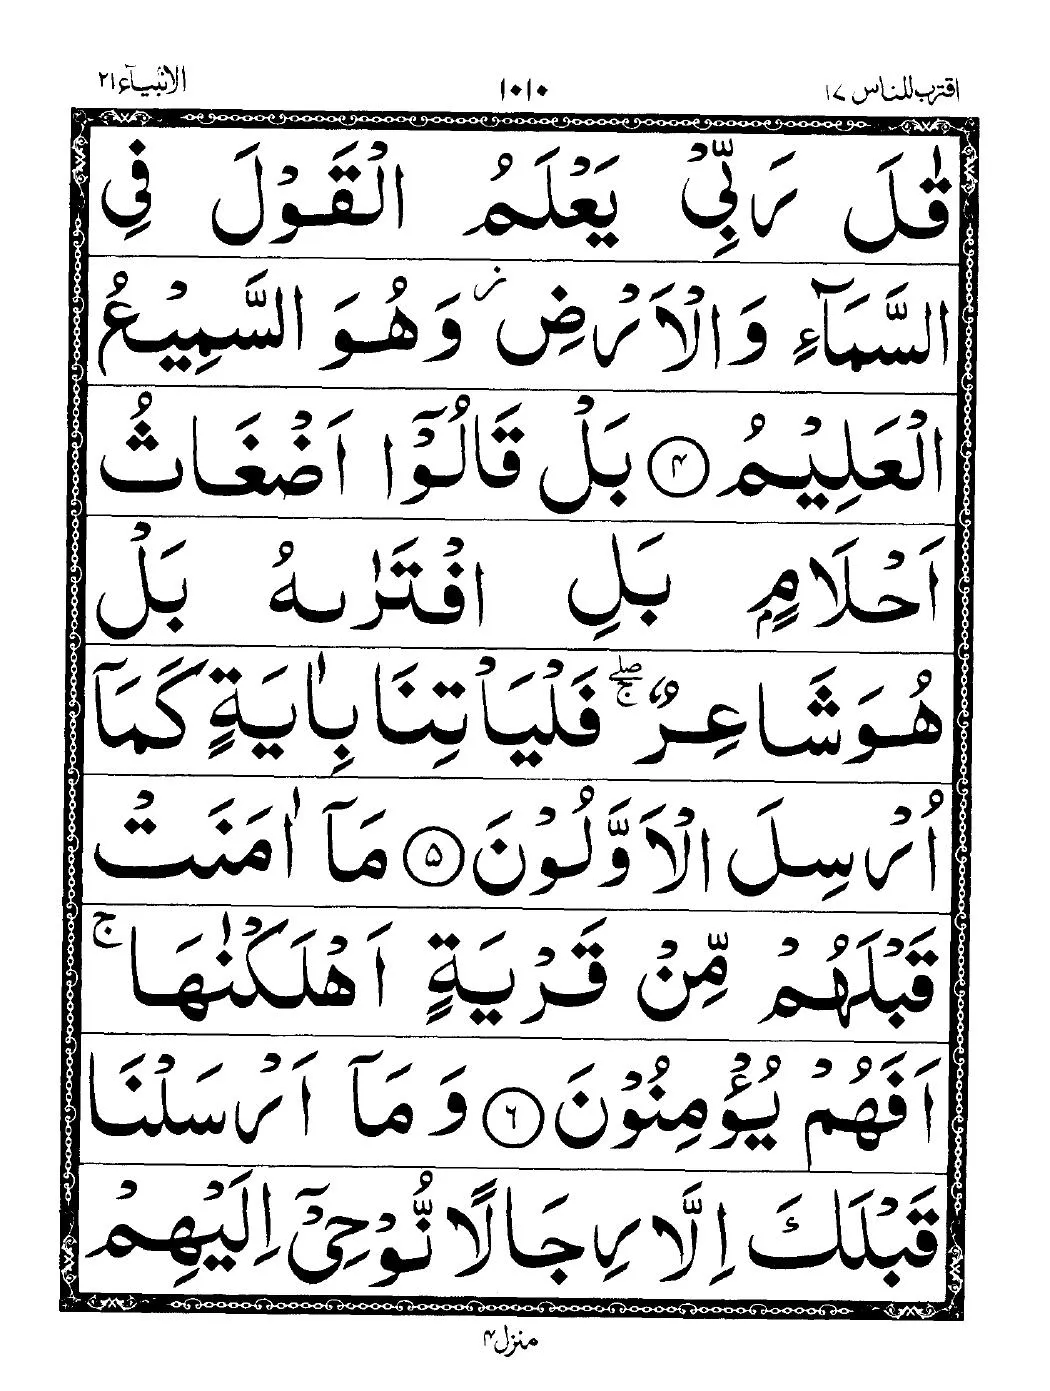 اقترب للناس ۱۷ ۱۰۱۰ الانبیآء ۲۱
قٰلَ رَبِّیْ یَعْلَمُ الْقَوْلَ فِی
السَّمَآءِ وَالْاَرْضِ ؗ وَهُوَ السَّمِیْعُ
الْعَلِیْمُ ۴ بَلْ قَالُوْۤا اَضْغَاثُ
اَحْلَامٍۭ بَلِ افْتَرٰىهُ بَلْ
هُوَ شَاعِرٌ ۖۚ فَلْیَاْتِنَا بِاٰیَةٍ كَمَاۤ
اُرْسِلَ الْاَوَّلُوْنَ ۵ مَاۤ اٰمَنَتْ
قَبْلَهُمْ مِّنْ قَرْیَةٍ اَهْلَكْنٰهَا ۚ
اَفَهُمْ یُؤْمِنُوْنَ ۶ وَمَاۤ اَرْسَلْنَا
قَبْلَكَ اِلَّا رِجَالًا نُّوْحِیْۤ اِلَیْهِمْ
منزل ۴